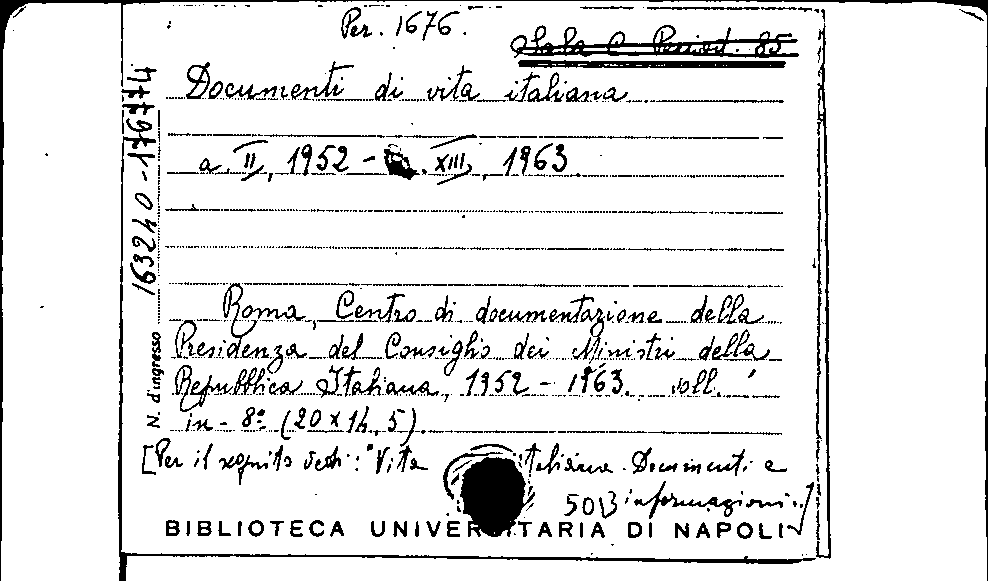 Per. 1676.
Sala C. Period. 85
Documenti di vita italiana
a. II, 1952 - . XIII, 1963.
163240 - 176774
Roma, Centro di documentazione della
Presidenza del Consiglio dei Ministri della
Repubblica Italiana, 1952 - 1963. voll.
in - 8º (20 x 14,5).
N. d'ingresso
[Per il seguito vedi: "Vita italiana. Documenti e
informazioni..]
5013
BIBLIOTECA UNIVERSITARIA DI NAPOLI